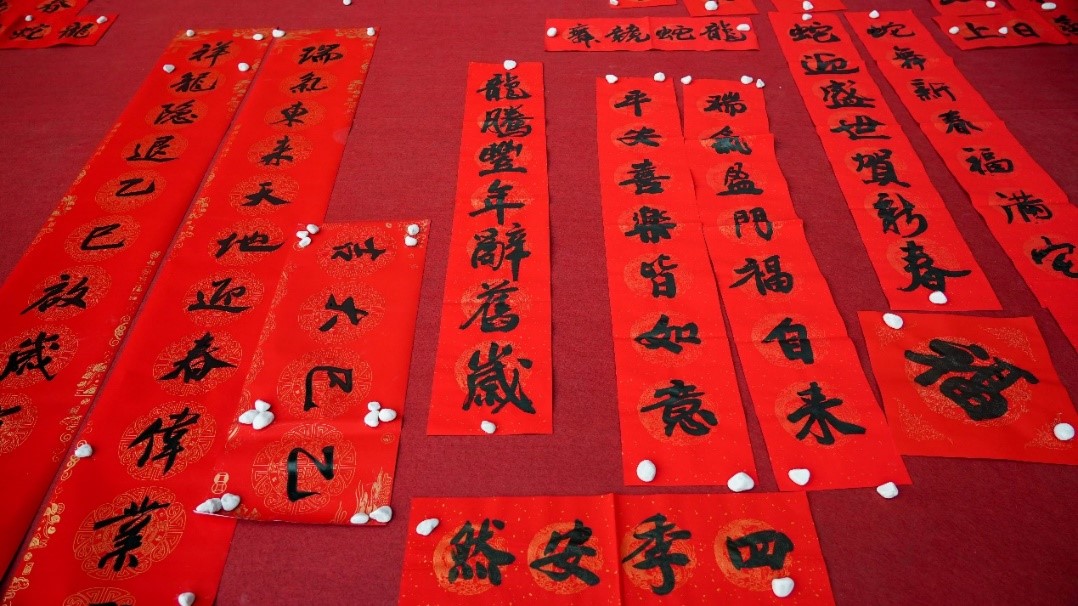 龍蛇
龍蛇
日上
蛇舞新春福满宅
蛇迎盛世賀新春
瑞氣盈門福自来
平安喜樂皆如意
龍騰豐年辭舊歲
瑞氣東来天地迎春偉業
祥龍隐退乙巳放歲
乙巳大吉
福
四季安然